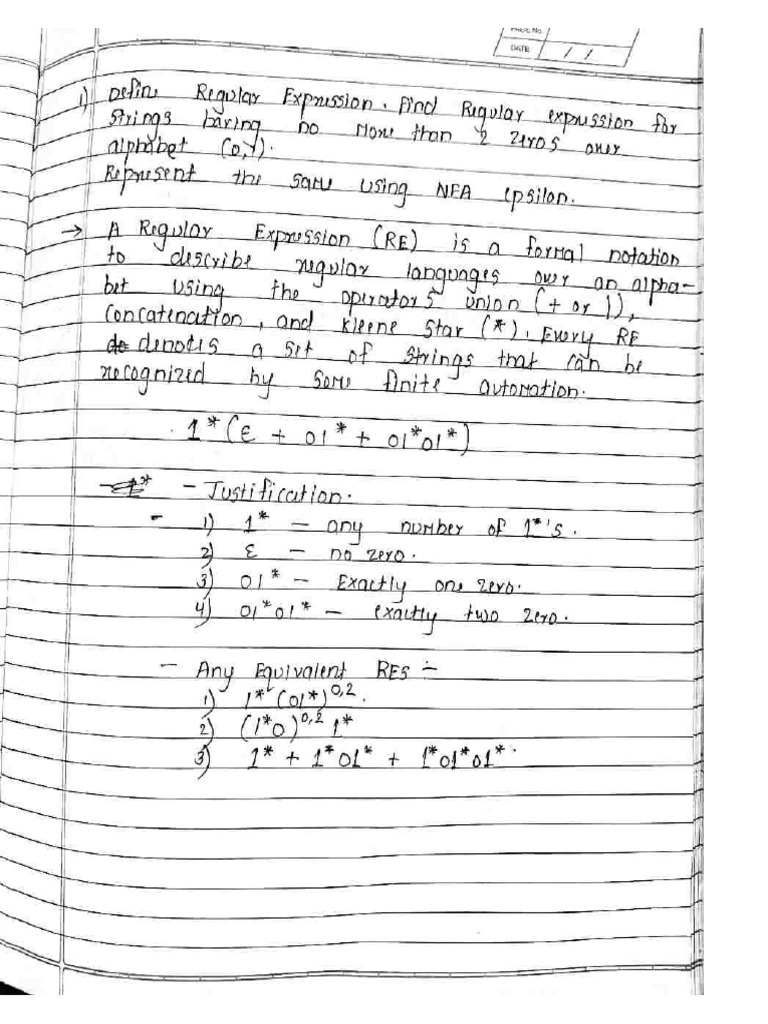 PAGE No.
DATE / /
1) Define Regular Expression. Find Regular expression for
strings having no more than 2 zeros over
alphabet (0,1).
Represent the same using NFA epsilon.
→ A Regular Expression (RE) is a formal notation
to describe regular languages over an alpha-
bet using the operators union (+ or |),
concatenation, and kleene star (*). Every RE
denotes a set of strings that can be
recognized by some finite automation.
1*(ε + 01* + 01*01*)
- Justification.
- 1) 1* – any number of 1*'s.
2) ε – no zero.
3) 01* – Exactly one zero.
4) 01*01* – exactly two zero.
- Any Equivalent REs :-
1) 1*(01*)^0,2.
2) (1*0)^0,2 1*
3) 1* + 1*01* + 1*01*01*.